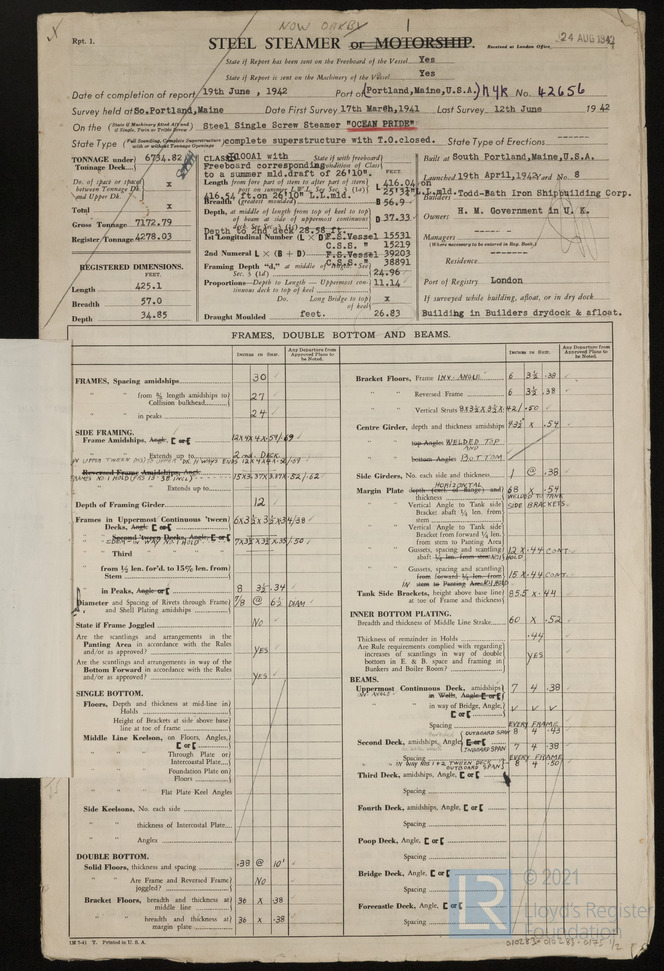 NOW OAKBY
Rpt. 1.
STEEL STEAMER or MOTORSHIP.
Received at London Office
24 AUG 1942
State if Report has been sent on the Freeboard of the Vessel Yes
State if Report is sent on the Machinery of the Vessel Yes
Date of completion of report 19th June , 1942 Port of (Portland, Maine, U.S.A.) NYK No. 42656
Survey held at So. Portland, Maine Date First Survey 17th March, 1941 Last Survey 12th June 1942
On the (State if Machinery fitted Aft and if Single, Twin or Triple Screw) Steel Single Screw Steamer "OCEAN PRIDE"
State Type (Full Scantling, Complete Superstructure with or without Tonnage Openings) complete superstructure with T.O.closed. State Type of Erections ------
TONNAGE under Tonnage Deck 6734.82
Do. of space or spaces between Tonnage Dk. and Upper Dk. x
Total x
Gross Tonnage 7172.79
Register Tonnage 4278.03
REGISTERED DIMENSIONS.
FEET.
Length 425.1
Breadth 57.0
Depth 34.85
CLASS 100A1 with State if with freeboard
Freeboard corresponding condition of Class
to a summer mld.draft of 26'10".
416.04 on
25'3¾" L.L.mld.
416.54 ft.on 26'10" L.L.mld.
Breadth (greatest moulded) B 56.9
Depth, at middle of length from top of keel to top of beam at side of uppermost continuous deck D 37.33
Depth to 2nd deck 28.58 ft.
1st Longitudinal Number (L × D) F.S.Vessel 15531
C.S.S. " 15219
2nd Numeral L × (B + D) F.S.Vessel 39203
C.S.S. " 38891
Framing Depth "d," at middle of length 24.96
Proportions—Depth to Length—Uppermost continuous deck to top of keel 11.14
Do. Long Bridge to top of keel x
Draught Moulded feet. 26.83
Built at South Portland, Maine, U.S.A.
Launched 19th April, 1942 Yard No. 8
Builders Todd-Bath Iron Shipbuilding Corp.
Owners H. M. Government in U. K.
Managers ------
(Where necessary to be entered in Reg. Book.)
Residence
Port of Registry London
If surveyed while building, afloat, or in dry dock
Building in Builders drydock & afloat.
FRAMES, DOUBLE BOTTOM AND BEAMS.
INCHES IN SHIP.
Any Departure from Approved Plans to be Noted.
FRAMES, Spacing amidships 30
" " from ⅗ length amidships to Collision bulkhead 27
" " in peaks 24
SIDE FRAMING.
Frame Amidships, Angle, [ or [ 12X4X4X.54/.69
" " Extends up to 2nd. DECK
Reversed Frame Amidships, Angle
FRAMES NO 1 HOLD 15X3.37X3.37X.52/.62
" " Extends up to
Depth of Framing Girder 12
Frames in Uppermost Continuous 'tween Decks, Angle, [ or [ 6X3½X3½X.34/.38
" " Second 'tween Decks, Angle, [ or [ 7X3½X3½X.35/.50
" " Third " "
" " from ⅕ len. for'd. to 15% len. from Stem
" " in Peaks, Angle or [ 8 3½ .34
Diameter and Spacing of Rivets through Frame and Shell Plating amidships 7/8 @ 6½ DIAM
State if Frame Joggled NO
Are the scantlings and arrangements in the Panting Area in accordance with the Rules and/or as approved? YES
Are the scantlings and arrangements in way of the Bottom Forward in accordance with the Rules and/or as approved? YES
SINGLE BOTTOM.
Floors, Depth and thickness at mid-line in Holds
" Height of Brackets at side above base line at toe of frame
Middle Line Keelson, on Floors, Angles, [ or [
" " Through Plate or Intercostal Plate
" " Foundation Plate on Floors
" " Flat Plate Keel Angles
Side Keelsons, No. each side
" " thickness of Intercostal Plate
" " Angles
DOUBLE BOTTOM.
Solid Floors, thickness and spacing .38 @ 10'
" " Are Frame and Reversed Frame joggled? NO
Bracket Floors, breadth and thickness at middle line 36 X .38
" " breadth and thickness at margin plate 36 X .38
INCHES IN SHIP.
Any Departure from Approved Plans to be Noted.
Bracket Floors, Frame INV. ANGLE 6 3½ .38
" " Reversed Frame 6 3½ .38
" " Vertical Struts 8X3½X3½X.42/.50
Centre Girder, depth and thickness amidships 43½ X .54
" " top Angle, WELDED TOP
AND
" " bottom Angle BOTTOM
Side Girders, No. each side and thickness 1 @ .38
HORIZONTAL
Margin Plate depth (excl. of flange) and thickness 68 X .54
" " Vertical Angle to Tank side Bracket abaft ¼ len. from stem WELDED TO TANK SIDE BRACKETS.
" " Vertical Angle to Tank side Bracket from forward ¼ len. from stem to Panting Area
" " Gussets, spacing and scantling abaft ¼ len. from stem NO 1 HOLD 12 X .44 CONT.
" " Gussets, spacing and scantling from forward ¼ len. from stem to Panting Area IN NO 1 HOLD 15 X .44 CONT.
Tank Side Brackets, height above base line at toe of Frame and thickness 85.5 X .44
INNER BOTTOM PLATING.
Breadth and thickness of Middle Line Strake 60 X .52
Thickness of remainder in Holds .44
Are Rule requirements complied with regarding increases of scantlings in way of double bottom in E. & B. space and framing in Bunkers and Boiler Room? YES
BEAMS.
Uppermost Continuous Deck, amidships in Wells, Angle, [ or [ 7 4 .38
INV ANGLE
" " in way of Bridge, Angle, [ or [ V V V
Spacing EVERY FRAME
Second Deck, amidships, Angle, [ or [ OUTBOARD SPAN 8 4 .43
INBOARD SPAN 7 4 .38
Spacing EVERY FRAME
" IN WAY NOS 1 + 2 TWEEN DECK OUTBOARD SPAN 8 4 .50
Third Deck, amidships, Angle, [ or [
Spacing
Fourth Deck, amidships, Angle, [ or [
Spacing
Poop Deck, Angle, [ or [
Spacing
Bridge Deck, Angle, [ or [
Spacing
Forecastle Deck, Angle, [ or [
Spacing
1M 7-41 T. Printed in U. S. A.
LR
© 2021
Lloyd's Register
Foundation
010283-010288-0175 1/2